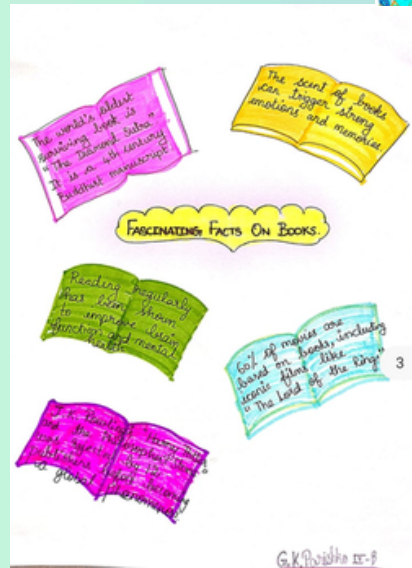 The world's oldest
surviving book is
"The Diamond Sutra"
It is a 4th century
Buddhist manuscript
The scent of books
can trigger strong
emotions and memories.
FASCINATING FACTS ON BOOKS.
Reading regularly
has been shown
to improve brain
function and mental
health
60% of movies are
based on books, including
iconic films like
"The Lord of the Ring"
3
and the Philosopher's
was rejected by 12
publishers before becoming
a global phenomenon
G.K. IX-B